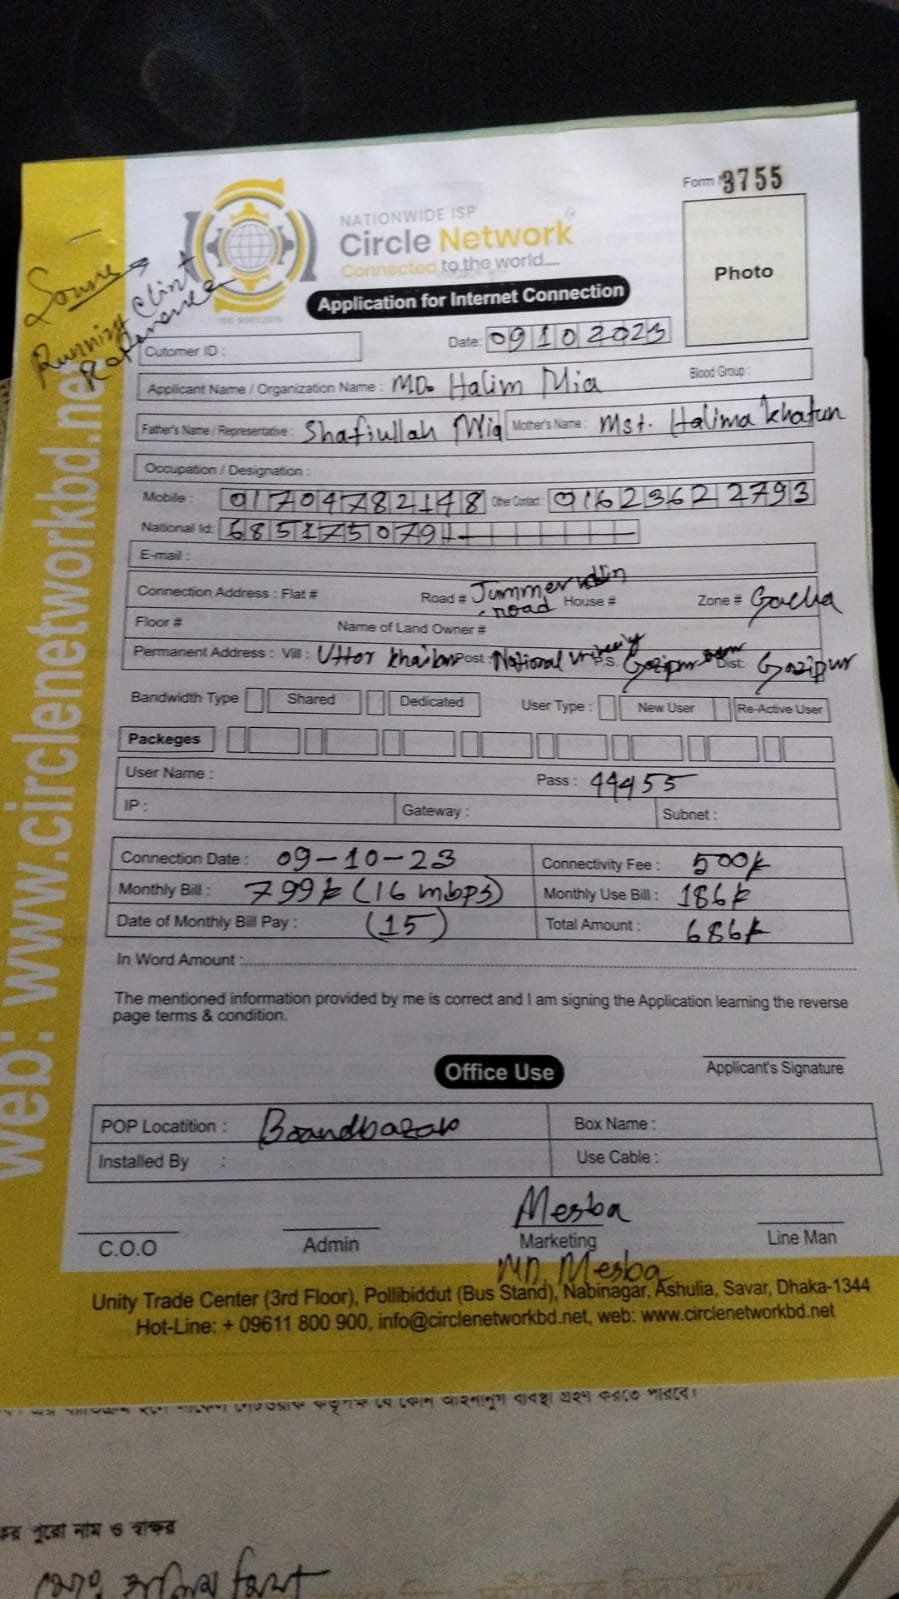 Form # 3755
NATIONWIDE ISP
Circle Network
Connected to the world....
Photo
Application for Internet Connection
Running Clint
Reference
Cutomer ID :
Date: 09102023
Applicant Name / Organization Name : MD. Halim Mia Blood Group :
Father's Name / Representative : Shafiullah Mia Mother's Name : Mst. Halima Khatun
Occupation / Designation :
Mobile : 01704782148 Other Contact : 01623622793
National Id: 685175079
E-mail :
Connection Address : Flat # Road # Jummeruddin road House # Zone # Gacha
Floor # Name of Land Owner #
Permanent Address : Vill : Uttor Khailan Post : National P.S. Gazipur Dist: Gazipur
Bandwidth Type Shared Dedicated User Type : New User Re-Active User
Packeges
User Name : Pass : 44455
IP : Gateway : Subnet :
Connection Date : 09-10-23 Connectivity Fee : 500
Monthly Bill : 799 (16 mbps) Monthly Use Bill : 186
Date of Monthly Bill Pay : (15) Total Amount : 686
In Word Amount :
The mentioned information provided by me is correct and I am signing the Application learning the reverse
page terms & condition.
Office Use
Applicant's Signature
POP Locatition : Boardbazar Box Name :
Installed By : Use Cable :
Mesba
C.O.O Admin Marketing Line Man
MD. Mesba
Unity Trade Center (3rd Floor), Pollibiddut (Bus Stand), Nabinagar, Ashulia, Savar, Dhaka-1344
Hot-Line: + 09611 800 900, info@circlenetworkbd.net, web: www.circlenetworkbd.net
web: www.circlenetworkbd.net
কোন আইনানুগ ব্যবস্থা গ্রহণ করতে পারবে।
পুরো নাম ও স্বাক্ষর